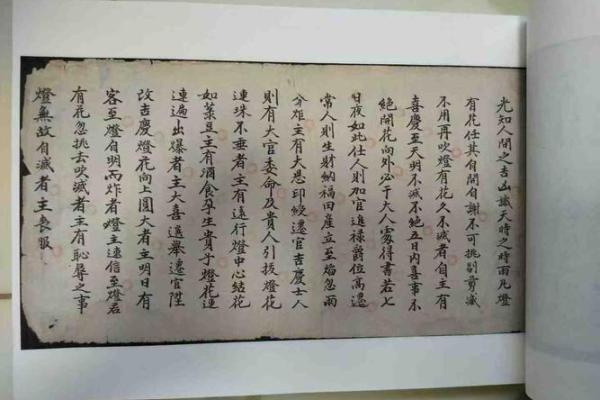 先知人間之吉凶識天時之時雨凡燈
有花任其自開自謝不可挑剔剪滅
不用再吹燈有花久不滅者自主有
喜慶至天明不滅不絕五日內喜事不
絕開花向外必于大人處得書若七
日夜如此仕人則加官進祿爵位高遷
常人則生財納福田產立至焰忽兩
分炷主有大恩印綬遷官吉慶士人
則有大官委命及貴人引拔燈花
連珠不垂者主有遠行燈中心結花
如菉豆主有酒食孕生貴子燈花連
連遍出爆者主大喜選舉遷官陞
改吉慶燈花向上圓大者主明日有
客至燈自明而炸者燈主速信至燈若
有花忽挑去吹滅者主有恥辱之事
燈無故自滅者主喪服